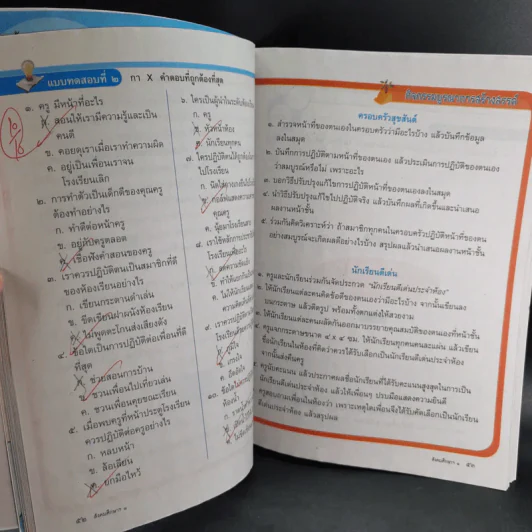 แบบทดสอบที่ ๒ กา X คำตอบที่ถูกต้องที่สุด
10/10
๑. ครู มีหน้าที่อะไร
ก. สอนให้เรามีความรู้และเป็น
คนดี
ข. คอยดุเราเมื่อเราทำความผิด
ค. อยู่เป็นเพื่อนเราจน
โรงเรียนเลิก
๒. การทำตัวเป็นเด็กดีของคุณครู
ต้องทำอย่างไร
ก. ทำดีต่อหน้าครู
ข. อยู่กับครูตลอด
ค. เชื่อฟังคำสอนของครู
๓. เราควรปฏิบัติตนเป็นสมาชิกที่ดี
ของห้องเรียนอย่างไร
ก. เขียนกระดานดำเล่น
ข. ขีดเขียนฝาผนังห้องเรียน
ค. ไม่พูดตะโกนส่งเสียงดัง
๔. ข้อใดเป็นการปฏิบัติต่อเพื่อนที่ดี
ที่สุด
ก. ช่วยสอนการบ้าน
ข. ชวนเพื่อนไปเที่ยวเล่น
ค. ชวนเพื่อนคุยขณะเรียน
๕. เมื่อพบครูที่หน้าประตูโรงเรียน
ควรปฏิบัติต่อครูอย่างไร
ก. หลบหน้า
ข. ล้อเลียน
ค. ยกมือไหว้
๕๒ สังคมศึกษาฯ ๑
๖. ใครเป็นผู้นำในระดับ
ก. ครู
ข. หัวหน้าห้อง
ค. นักเรียนทุกคน
๗. ใครปฏิบัติตนได้
ไปโรงเรียน
คุณครู
๘. เราใช้หลักการประชา
โรงเรียน
ครอบครัวสุขสันต์
๑. สำรวจหน้าที่ของตนเองในครอบครัวว่ามีอะไรบ้าง แล้วบันทึกข้อมูล
ลงในสมุด
๒. บันทึกการปฏิบัติตามหน้าที่ของตนเอง แล้วประเมินการปฏิบัติของตนเอง
ว่าสมบูรณ์หรือไม่ เพราะอะไร
๓. บอกวิธีปรับปรุงแก้ไขการปฏิบัติตามหน้าที่ของตนเองลงในสมุด
๔. นำวิธีปรับปรุงแก้ไขไปปฏิบัติจริง แล้วบันทึกผลที่เกิดขึ้นและนำเสนอ
ผลงานหน้าชั้น
๕. ร่วมกันคิดวิเคราะห์ว่า ถ้าสมาชิกทุกคนในครอบครัวปฏิบัติหน้าที่ของตน
อย่างสมบูรณ์จะเกิดผลดีอย่างไรบ้าง สรุปผลแล้วนำเสนอผลงานหน้าชั้น
นักเรียนดีเด่น
๑. ครูและนักเรียนร่วมกันจัดประกวด "นักเรียนดีเด่นประจำห้อง"
๒. ให้นักเรียนแต่ละคนคิดข้อดีของตนเองว่ามีอะไรบ้าง จากนั้นเขียนลง
บนกระดาษ แล้วติดรูป พร้อมทั้งตกแต่งให้สวยงาม
๓. ให้นักเรียนแต่ละคนผลัดกันออกมาบรรยายคุณสมบัติของตนเองที่หน้าชั้น
๔. ครูแจกกระดาษขนาด ๔ x ๔ ซม. ให้นักเรียนทุกคนคนละแผ่น แล้วเขียน
ชื่อนักเรียนในห้องที่คิดว่าควรได้รับเลือกเป็นนักเรียนดีเด่นประจำห้อง
จากนั้นส่งคืนครู
ครูนับคะแนน แล้วประกาศผลชื่อนักเรียนที่ได้รับคะแนนสูงสุดในการเป็น
นักเรียนดีเด่นประจำห้อง แล้วให้เพื่อนๆ ปรบมือแสดงความยินดี
ครูสอบถามเพื่อนในห้องว่า เพราะเหตุใดเพื่อนจึงได้รับคัดเลือกเป็นนักเรียน
ดีเด่นประจำห้อง แล้วสรุปผล
สังคมศึกษาฯ ๑ ๕๓